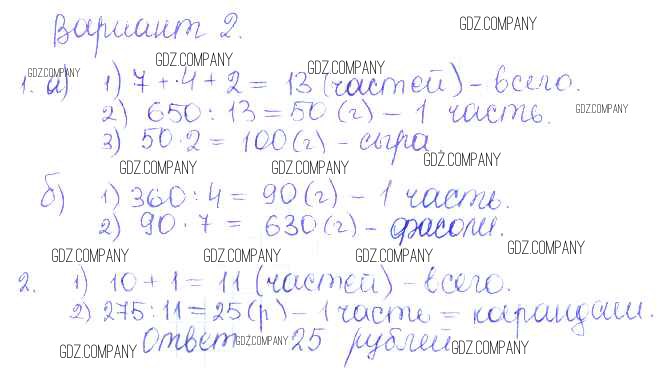 Вариант 2.
GDZ.COMPANY
GDZ.COMPANY
GDZ.COMPANY
GDZ.COMPANY
1. а) 1) 7 + 4 + 2 = 13 (частей) - всего.
2) 650 : 13 = 50 (г) - 1 часть.
GDZ.COMPANY
3) 50 · 2 = 100 (г) - сыра
GDZ.COMPANY
GDZ.COMPANY
GDZ.COMPANY
б) 1) 360 : 4 = 90 (г) - 1 часть.
2) 90 · 7 = 630 (г) - фасоли.
GDZ.COMPANY
GDZ.COMPANY
GDZ.COMPANY
GDZ.COMPANY
2. 1) 10 + 1 = 11 (частей) - всего.
2) 275 : 11 = 25 (р) - 1 часть = карандаш.
Ответ 25 рублей
GDZ.COMPANY
GDZ.COMPANY
GDZ.COMPANY